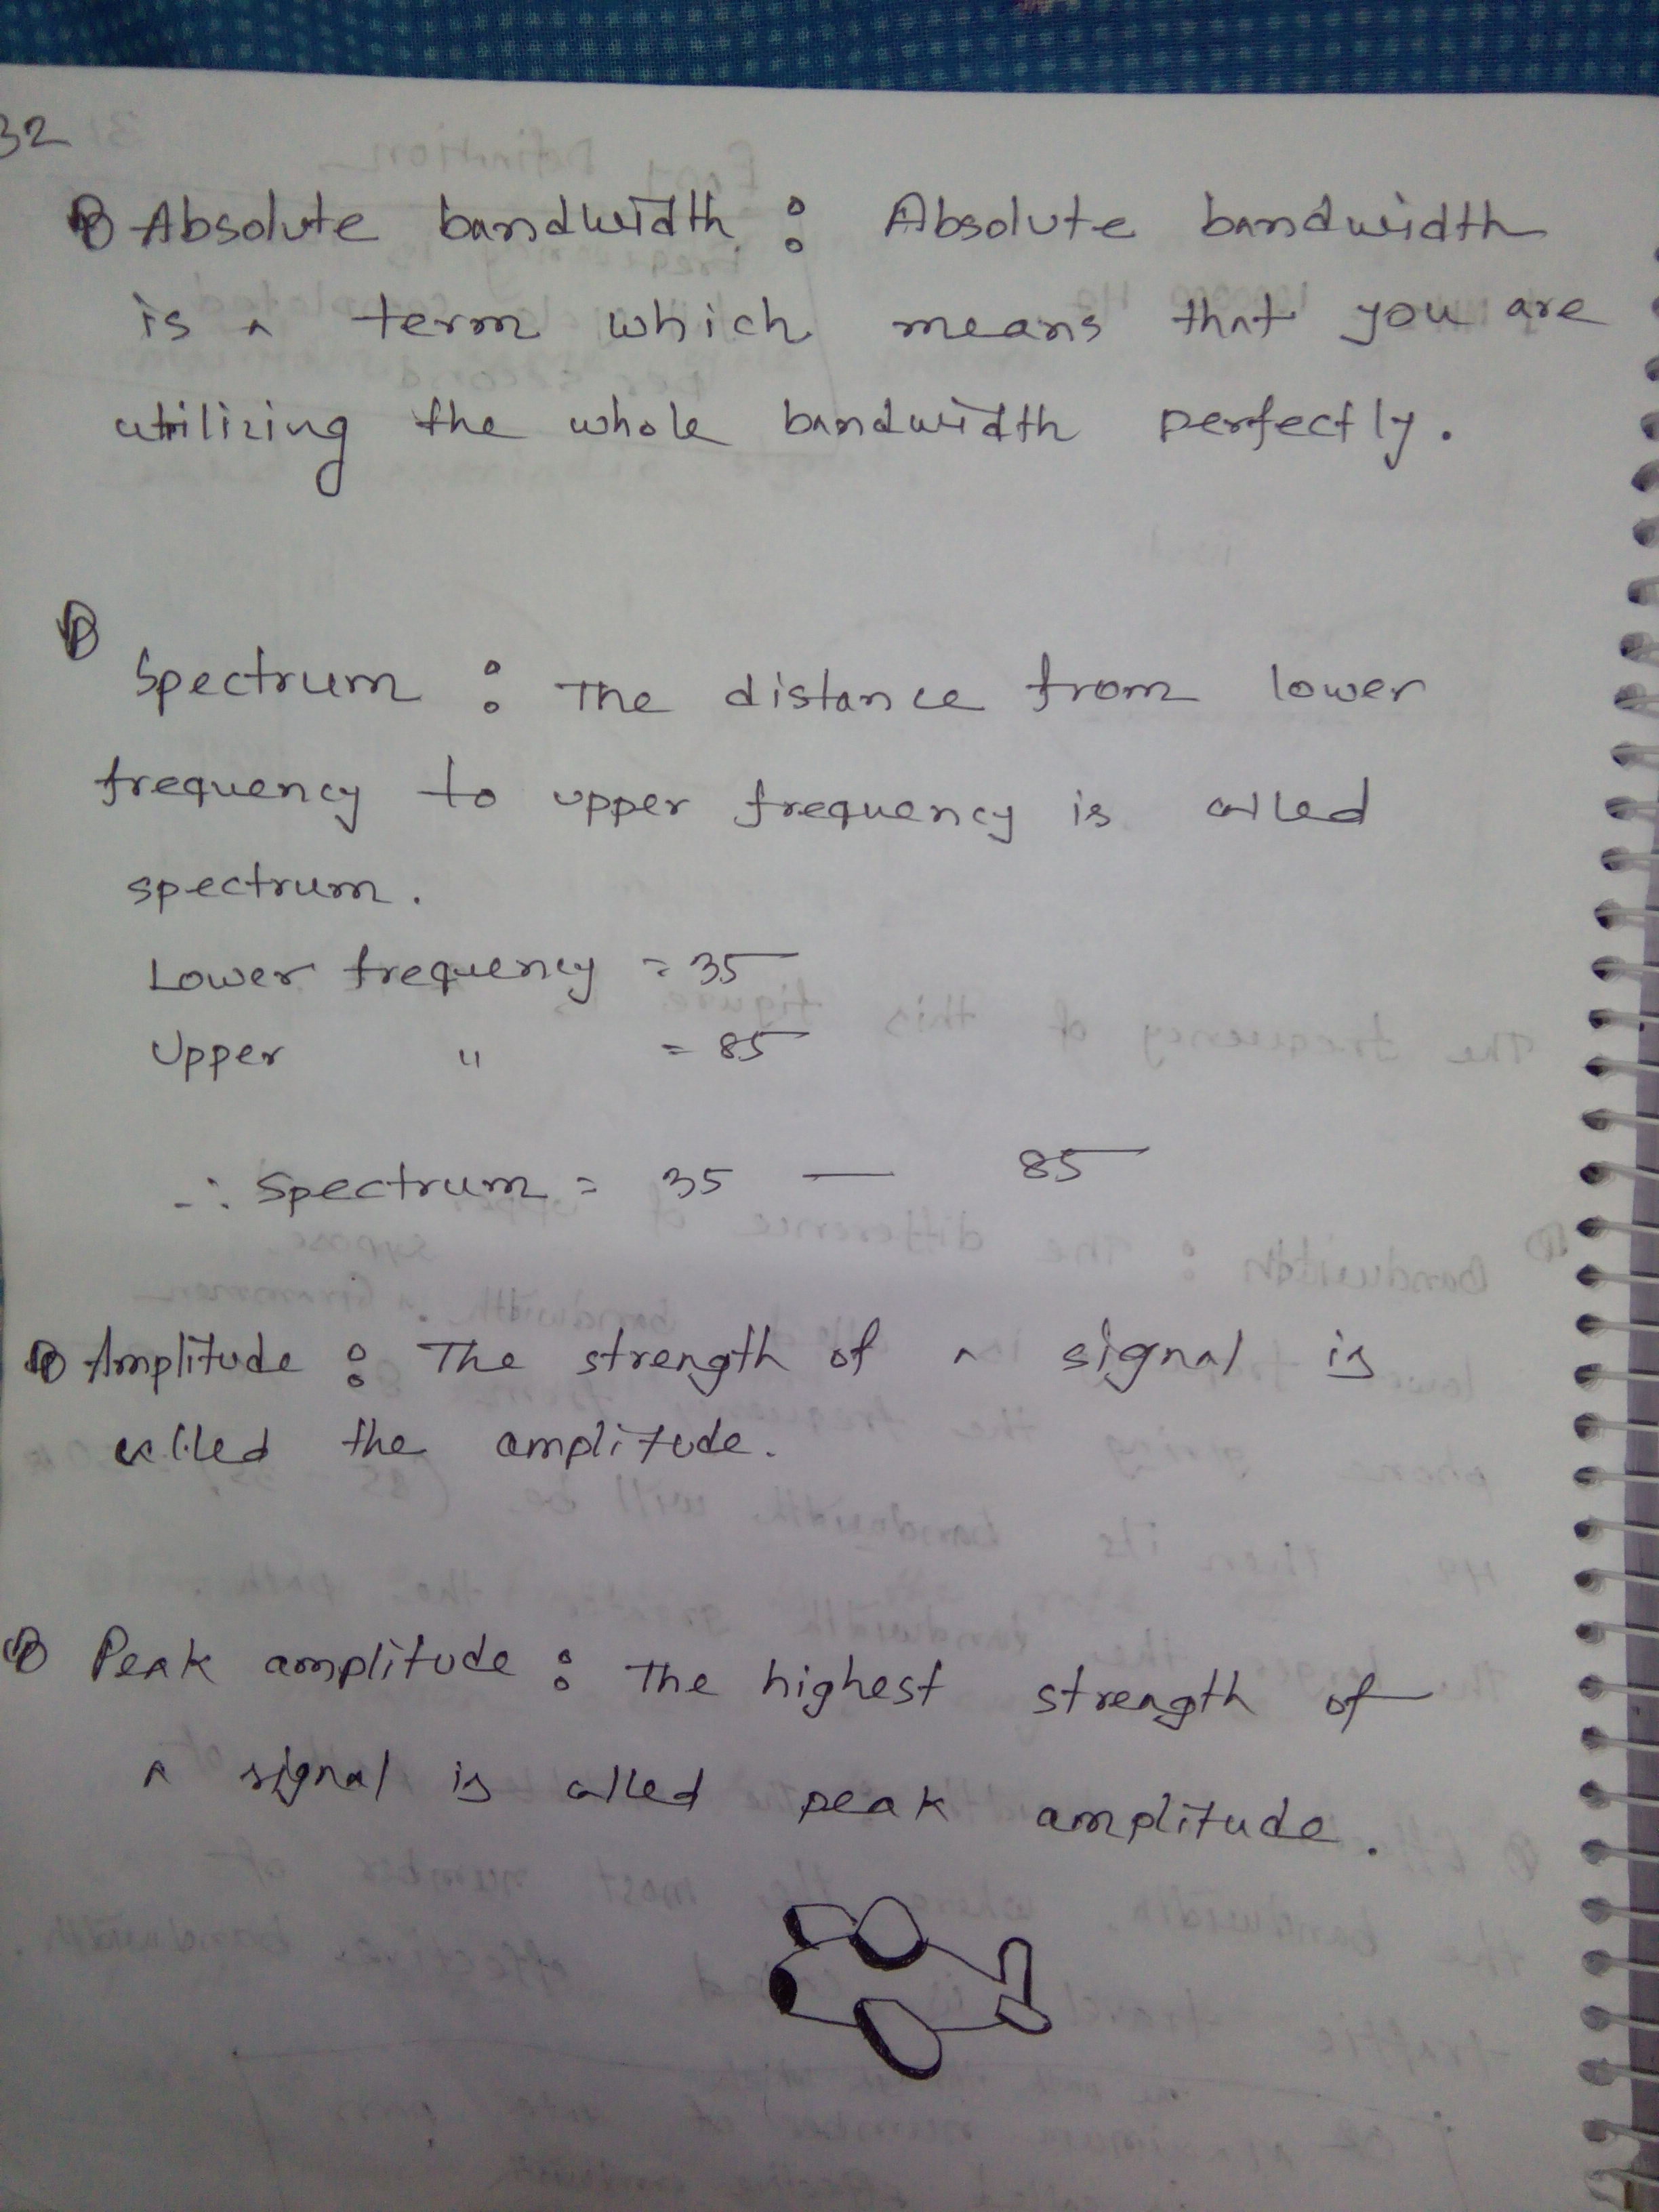 32
Absolute bandwidth : Absolute bandwidth
is a term which means that you are
utilizing the whole bandwidth perfectly.
Spectrum : The distance from lower
frequency to upper frequency is called
spectrum.
Lower frequency = 35
Upper " = 85
∴ Spectrum = 35 — 85
Amplitude : The strength of a signal is
called the amplitude.
Peak amplitude : The highest strength of
a signal is called peak amplitude.